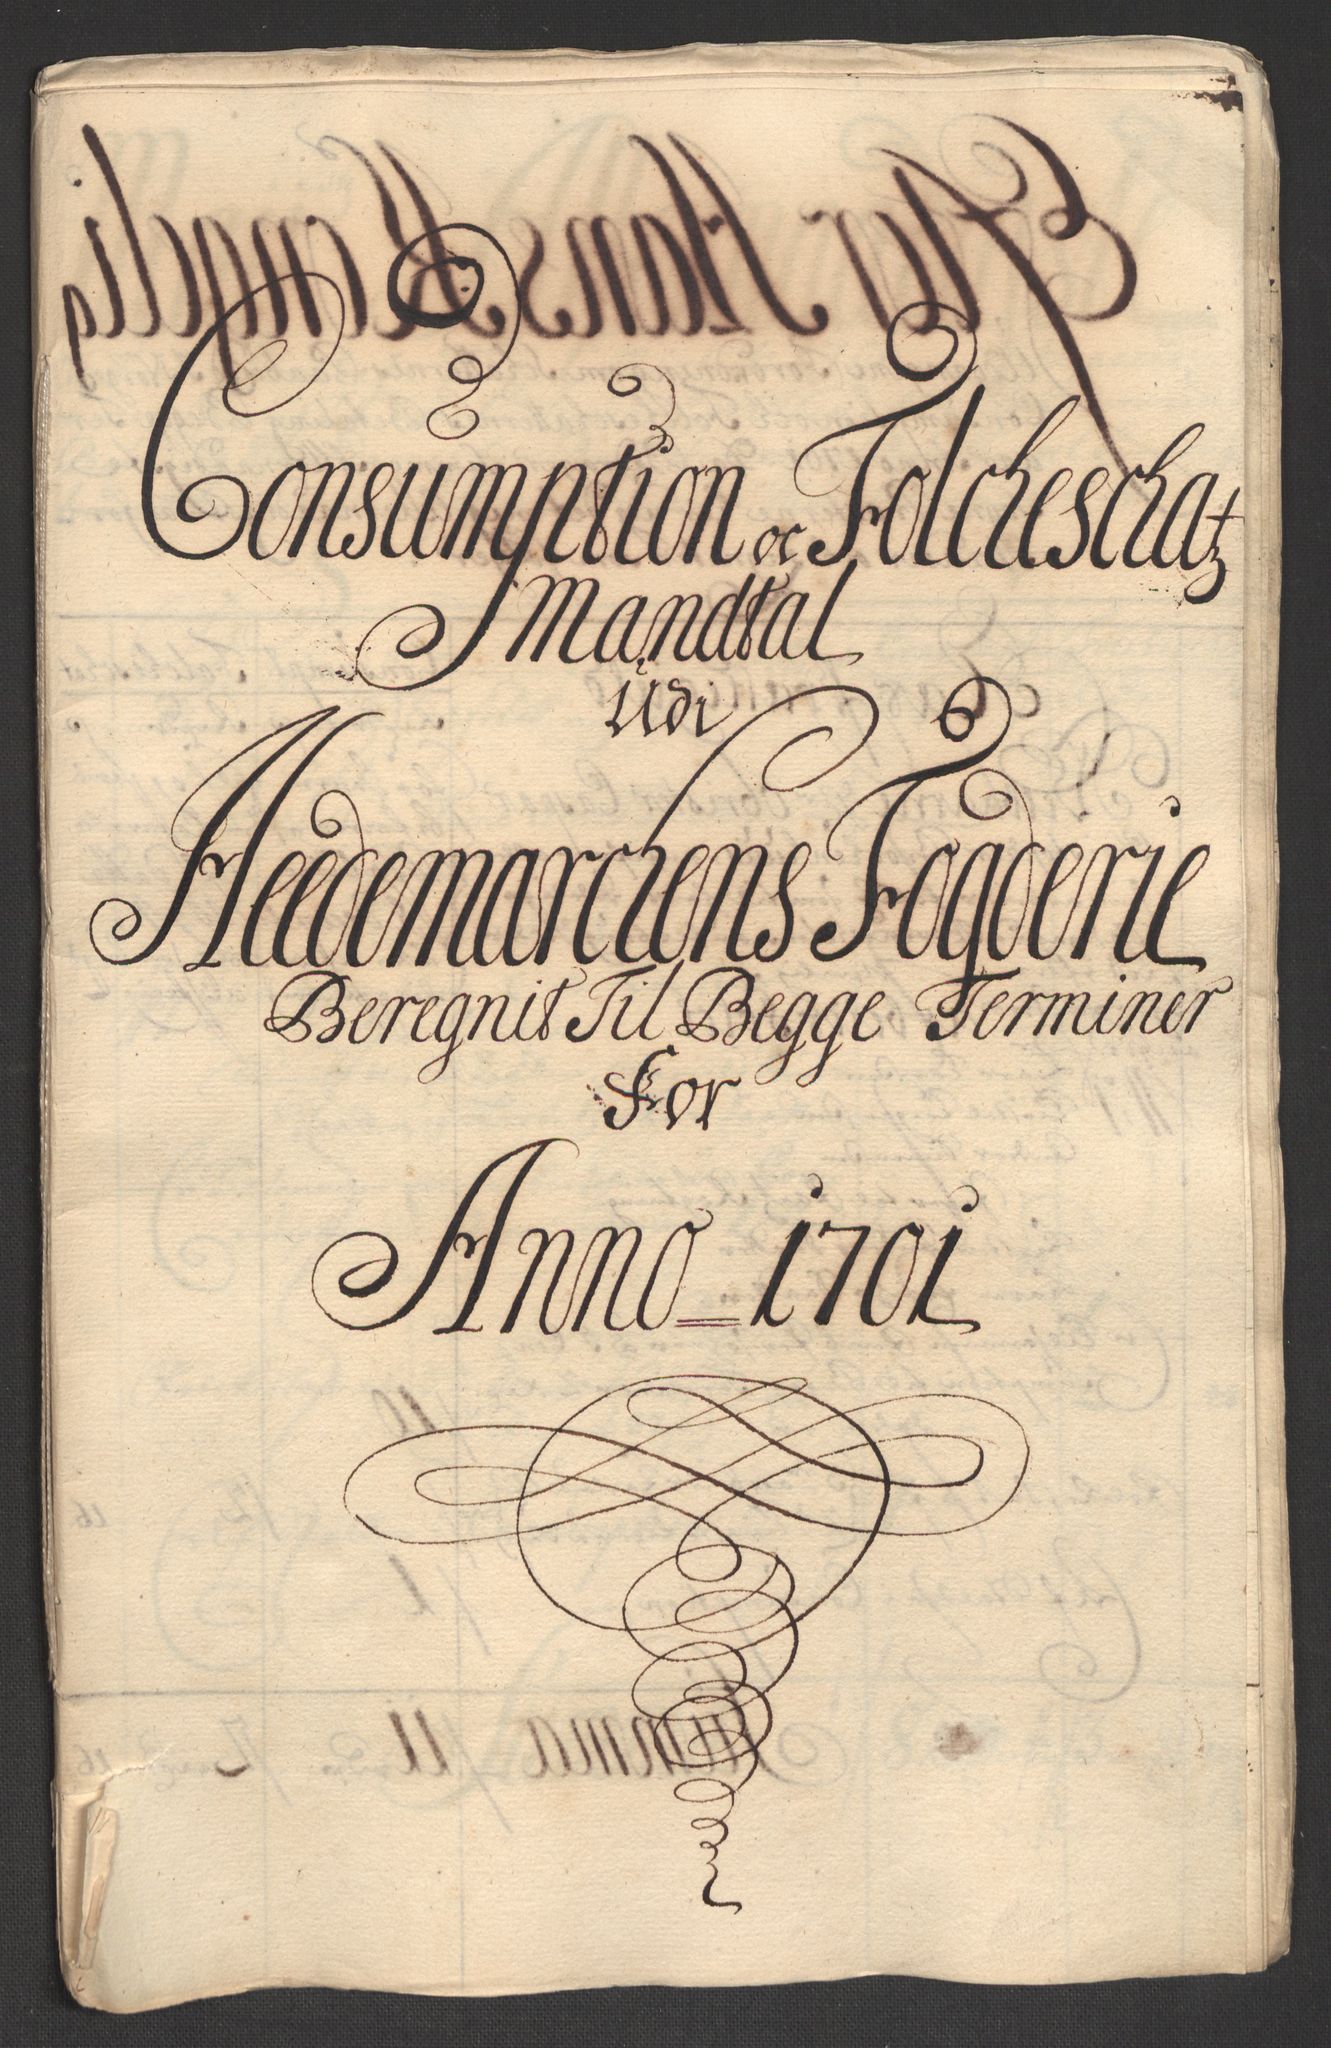 Consumption oc Folcheschatz
Mandtal
Udi
Heedemarchens Fogderie
Beregnit Til Begge Terminer
For
Anno 1701